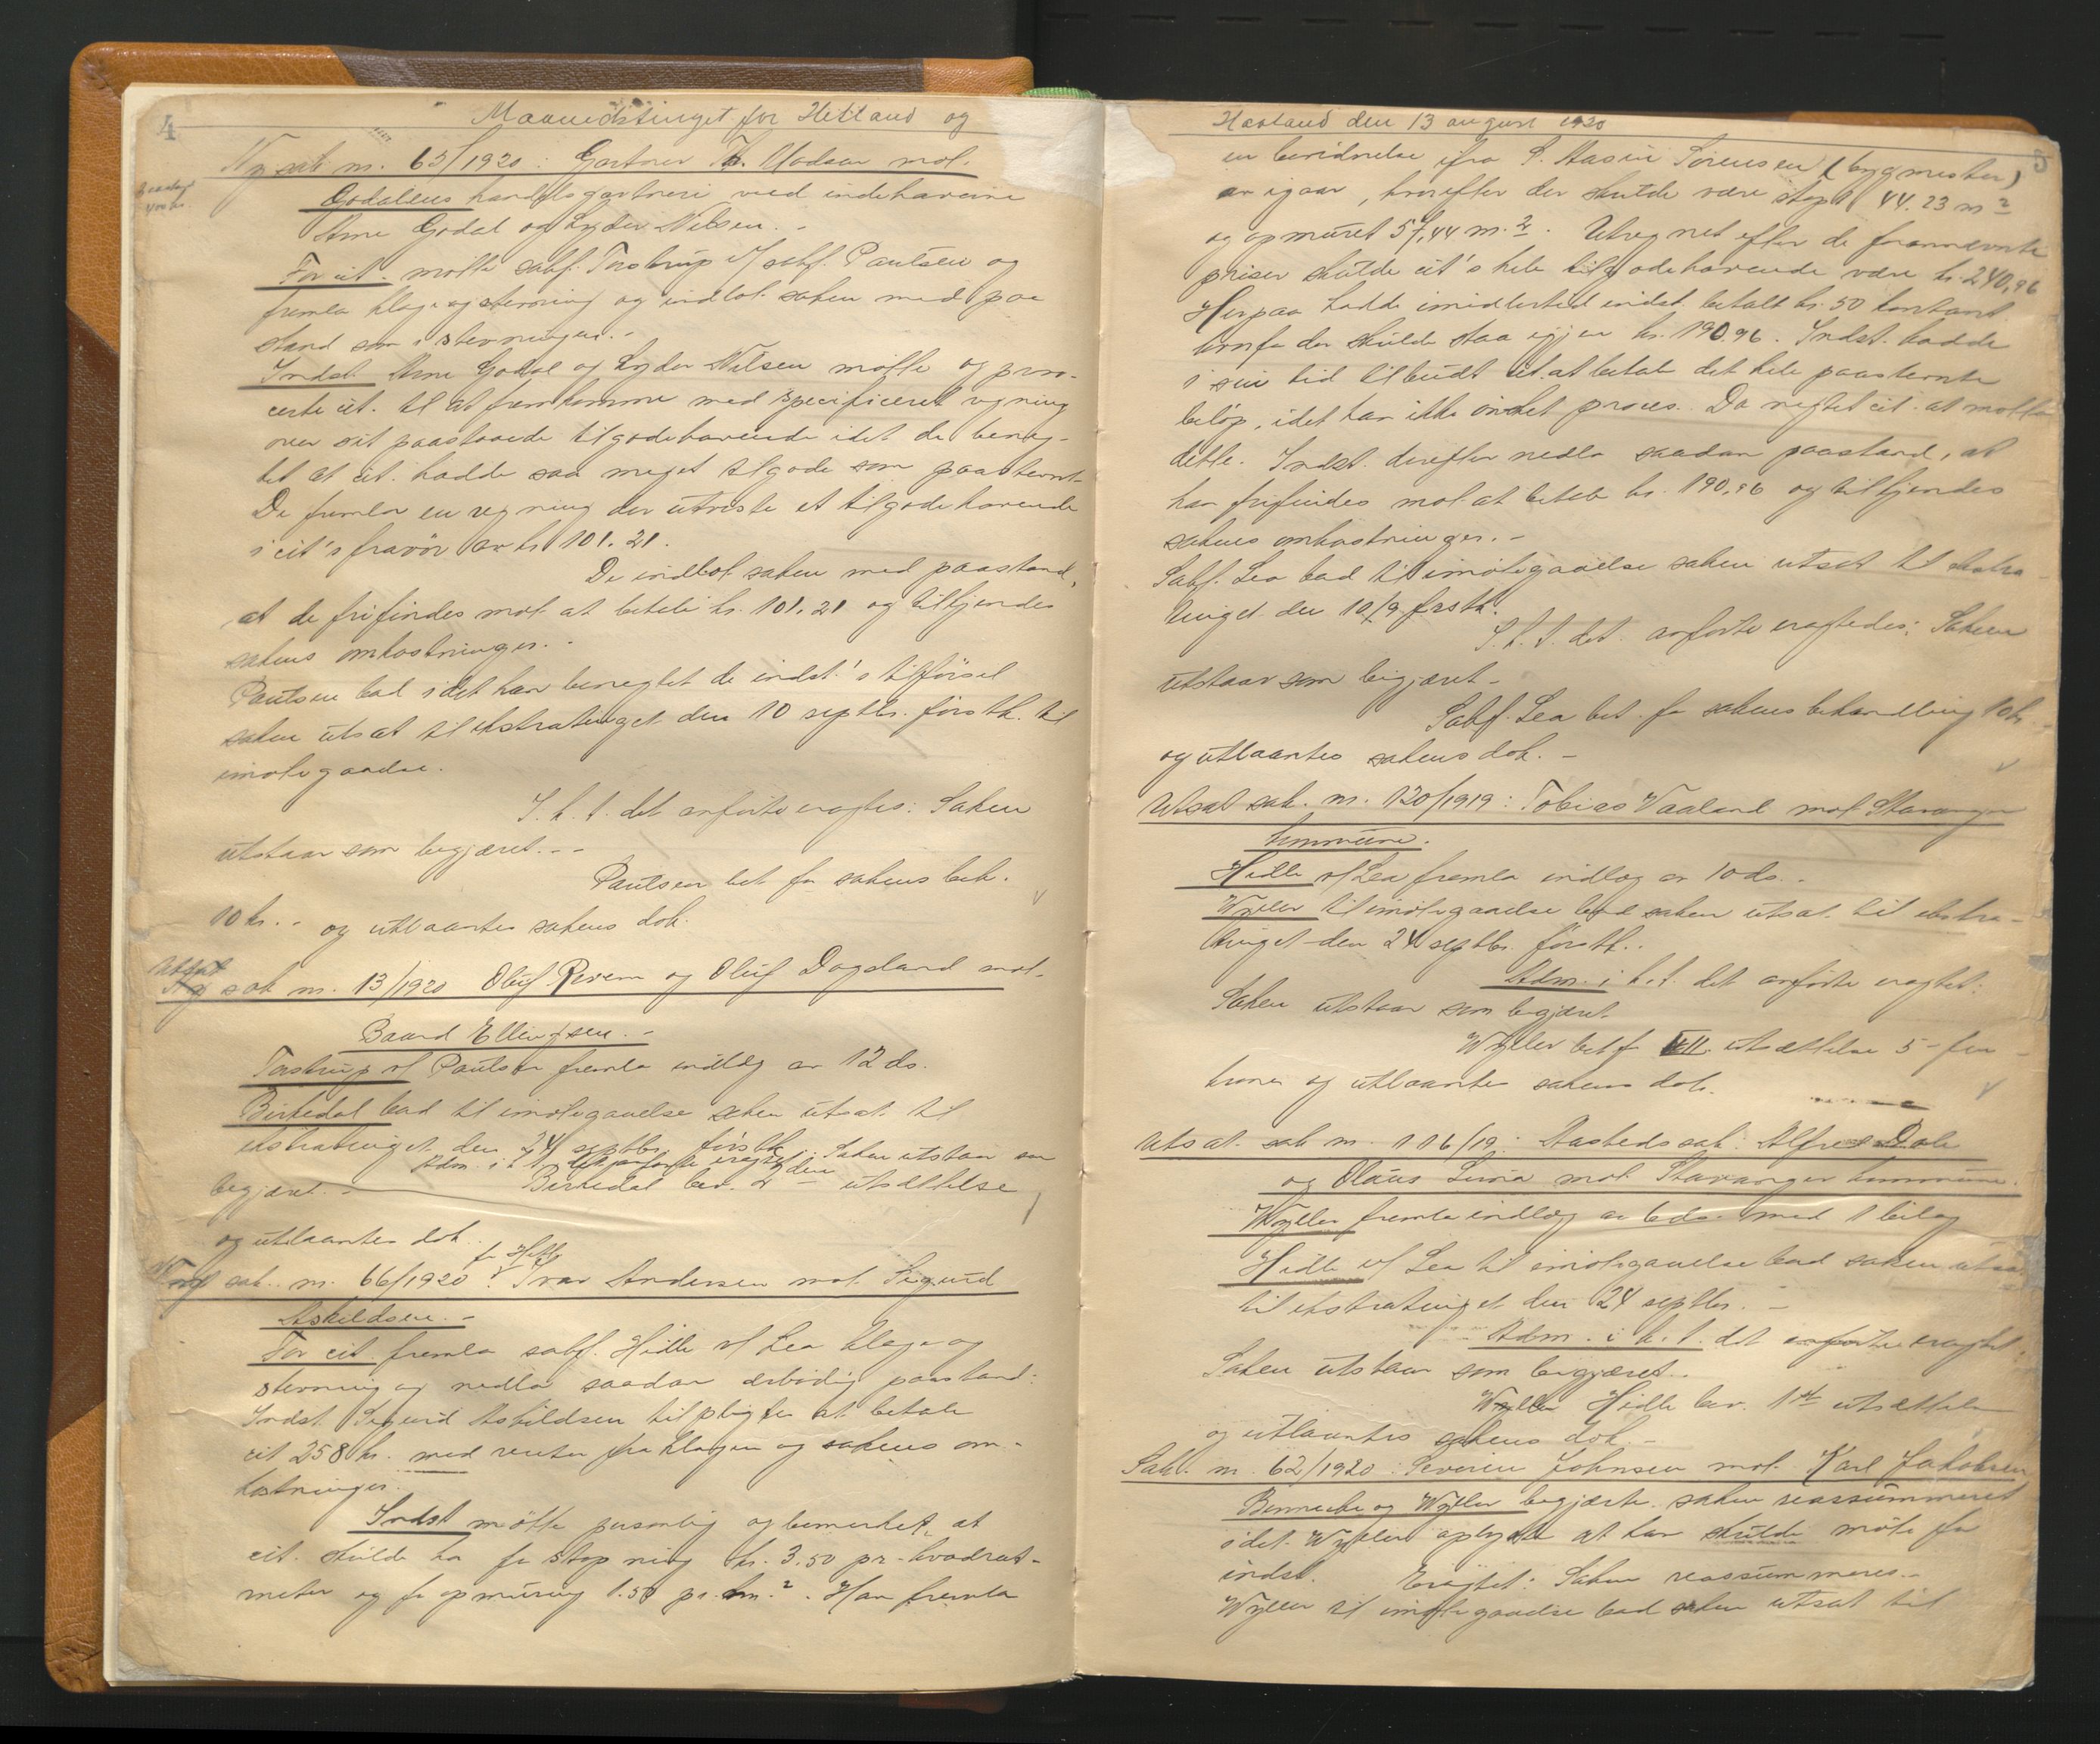 4
Maanedstinget for Hetland og
Ny sak nr. 65/1920: Gartner Th. Madsen mot
Godalens handelsgartneri ved indehaverne
Arne Godal og Lyder Nilsen. -
For cit. møtte sakf. Torstrup v/ sakf. Paulsen og
fremla klage og stevning og indlot saken med paa
stand som i stevningen. -
Indst. Arne Godal og Lyder Nilsen møtte og provo-
certe cit. til at fremkomme med specificeret regning
over sit paastaaede tilgodehavende idet de benæg-
tet at cit. hadde saa meget tilgode som paastevnt.
De fremla en regning der utviste et tilgodehavende
i cit's favør av kr 101.21.
De indlot saken med paastand,
at de frifindes mot at betale kr. 101.21 og tilkjendes
sakens omkostninger. -
Paulsen bad idet han benegtet de indst.'s tilførsel
saken utsat til ekstratinget den 10 septbr. førstk. til
imøtegaaelse.
I h. t. det anførte eragtes: Saken
utstaar som begjæret. - -
Paulsen bet. for sakens beh.
10 kr. - og utlaantes sakens dok.
Utsat sak nr. 13/1920 Oluf Revem og Oluf Dagsland mot
Baard Ellingsen. -
Torstrup v/ Paulsen fremla indlæg av 12 ds.
Birkedal bad til imøtegaaelse saken utsat til
ekstratinget den 24 septbr. førstk.
Adm. i h. t. det anførte eragtet: Saken utstaar som
begjæret. - Birkedal bev. 2 den utsættelse
og utlaantes dok.
Ny sak nr. 66/1920 for Hetl.: Ivar Andersen mot Sigurd
Askildsen. -
For cit. fremla sakf. Hidle v/ Lea klage og
stevning og nedla saadan ærbødig paastand:
Indst. Sigurd Askildsen tilpligtes at betale
cit 258 kr. med renter fra klagen og sakens om-
kostninger.
Indst møtte personlig og bemerket, at
cit. skulde ha for støpning kr. 3.50 pr. kvadrat-
meter og for opmuring 1.50 pr. m.². Han fremla
Havland den 13 august 1920
5
en bevidnelse ifra S. Sørensen (bygmester)
av igaar, hvorefter der skulde være støpt 44.23 m²
og opmuret 57,44 m.². Utregnet efter de forannævnte
priser skulde cit's hele tilgodehavende være kr. 240,96
Herpaa hadde imidlertid indst. betalt kr. 50 kontant
hvorfor der skulde staa igjen kr. 190.96. Indst. hadde
i sin tid tilbudt cit. at betale det hele paastevnte
beløp, idet han ikke ønsket proces. Da negtet cit. at motta
dette. Indst. derefter nedla saadan paastand, at
han frifindes mot at betale kr. 190,96 og tilkjendes
sakens omkostninger. -
Sakf. Lea bad til imøtegaaelse saken utsat til ekstra
tinget den 10/9 førstk.
I h. t. det anførte eragtedes: Saken
utstaar som begjæret -
Sakf. Lea bet. for sakens behandling 10 kr. -
og utlaantes sakens dok. -
Utsat sak. nr. 120/1919: Tobias Vaaland mot Stavanger
kommune.
Hidle v/ Lea fremla indlæg av 10 ds. -
Wyller til imøtegaaelse bad saken utsat til ekstra-
tinget den 24 septbr. førstk..
Adm. i h. t. det anførte eragtet:
Saken utstaar som begjæret.
Wyller bet for utsættelse 5 - fem -
kroner og utlaantes sakens dok.
Utsat sak nr. 116/19: Aastedssak: Alfred Dale
og Olaus Lima mot Stavanger kommune.
Wyller fremla indlæg av 6 ds. med 1 bilag
Hidle v/ Lea til imøtegaaelse bad saken utsat
til ekstratinget den 24 septbr. -
Adm. i h. t. det anførte eragtet:
Saken utstaar som begjæret..
Wyller Hidle bev. 1ste utsættelse
og utlaantes sakens dok. -
Sak. nr. 62/1920: Severin Johnsen mot Karl Jakobsen
Bennecke og Wyller begjærte saken reassummeret
idet Wyller oplyste at han skulde møte for
indst. Eragtet: Saken reassummeres. -
Wyller til imøtegaaelse bad saken utsat til